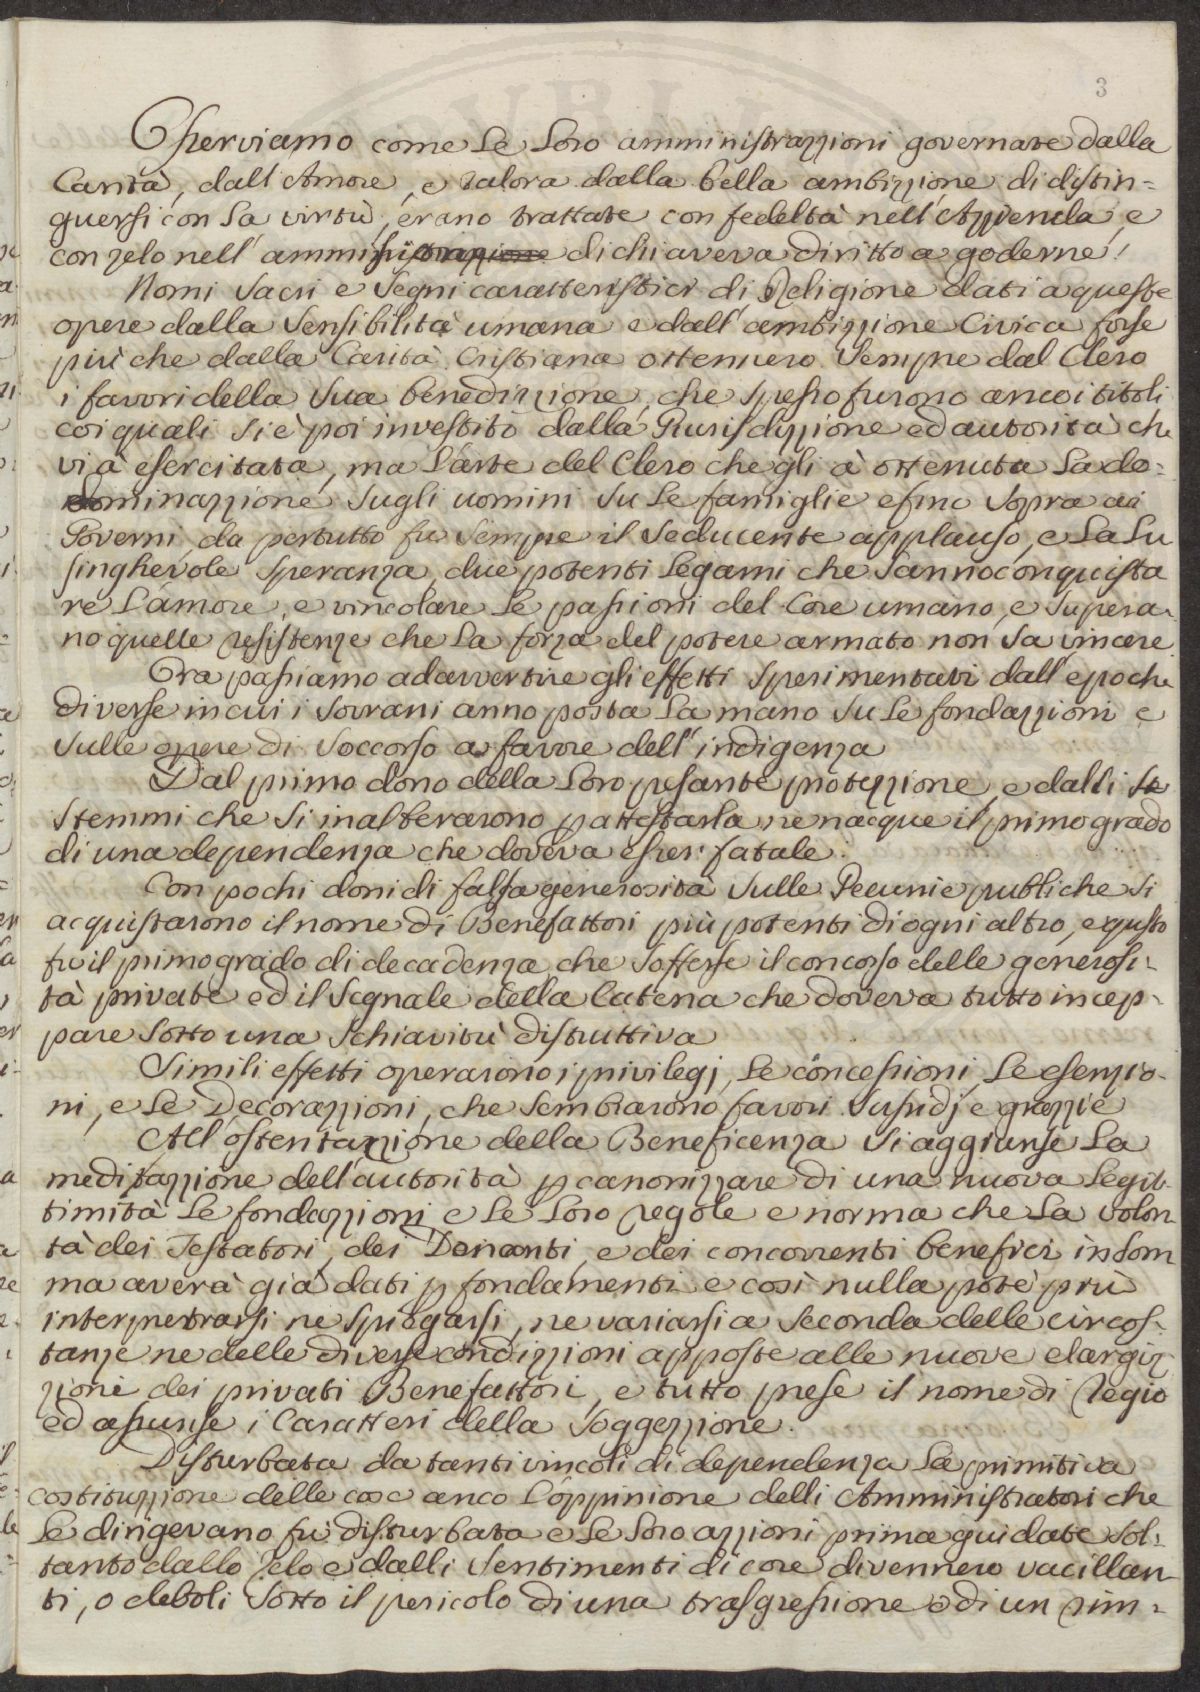 3
Osserviamo come le loro amministrazzioni governate dalla
Carità, dall'Amore, e talora dalla bella ambizzione di distin=
guersi con la virtù, erano trattate con fedeltà nell'Azzienda, e
con zelo nell' ammi di chi aveva diritto a goderne!
Nomi sacri e segni caratteristici di Religione dati a queste
opere dalla sensibilità umana e dall'ambizzione Civica forse
più che dalla Carità Cristiana ottennero sempre dal Clero
i favori della sua benedizzione, che spesso furono anco i titoli
coi quali si è poi investito dalla Giurisdizzione ed autorità che
vi à esercitata, ma l'arte del Clero che gli à ottenuta la do=
dominazzione sugli uomini su le famiglie e fino sopra ai
Governi, da pertutto fu sempre il seducente applauso, e la lu
singhevole speranza, due potenti legami che sanno conquista
re l'amore, e vincolare le passioni del Core umano, e supera=
no quelle resistenze che la forza del potere armato non sa vincere
Ora passiamo ad avvertire gli effetti sperimentati dall'epoche
diverse in cui i sovrani anno posta la mano su le fondazzioni e
sulle opere di soccorso a favore dell'indigenza
Dal primo dono della loro pesante protezzione, e dalli ste
stemmi che si inalberarono p attestarla ne nacque il primo grado
di una dependenza che doveva esser fatale.
Con pochi doni di falsa generosità sulle Pecunie publiche si
acquistarono il nome di Benefattori più potenti di ogni altro, e questo
fu il primo grado di decadenza che sofferse il concorso delle generosi=
tà private ed il segnale della Catena che doveva tutto incep=
pare sotto una schiavitù distruttiva
Simili effetti operarono i privilegj, le concessioni, le esenzio=
ni, e le Decorazzioni, che sembrarono favori susidj e grazzie
All'ostentazzione della Beneficenza si aggiunse la
meditazzione dell'autorità p canonizzare di una nuova legit=
timità le fondazzioni e le loro regole e norma che la volon=
tà dei Testatori, dei Donanti, e dei concorrenti benefici insom
ma averà già dati p fondamenti e così nulla potè più
interpetrarsi ne spiegarsi, ne variarsi a seconda delle circos=
tanze ne delle diverse condizzioni apposte alle nuove elargiz
zioni dei privati Benefattori, e tutto prese il nome di Regio
ed assunse i Caratteri della soggezzione.
Disturbata da tanti vincoli di dependenza la primitiva
costituzzione delle cose anco l'oppinione delli Amministratori che
le dirigevano fu disturbata e le loro azzioni prima guidate sol=
tanto dallo zelo e dalli sentimenti di core divennero vacillan=
ti, o deboli sotto il pericolo di una trasgressione o di un rim=